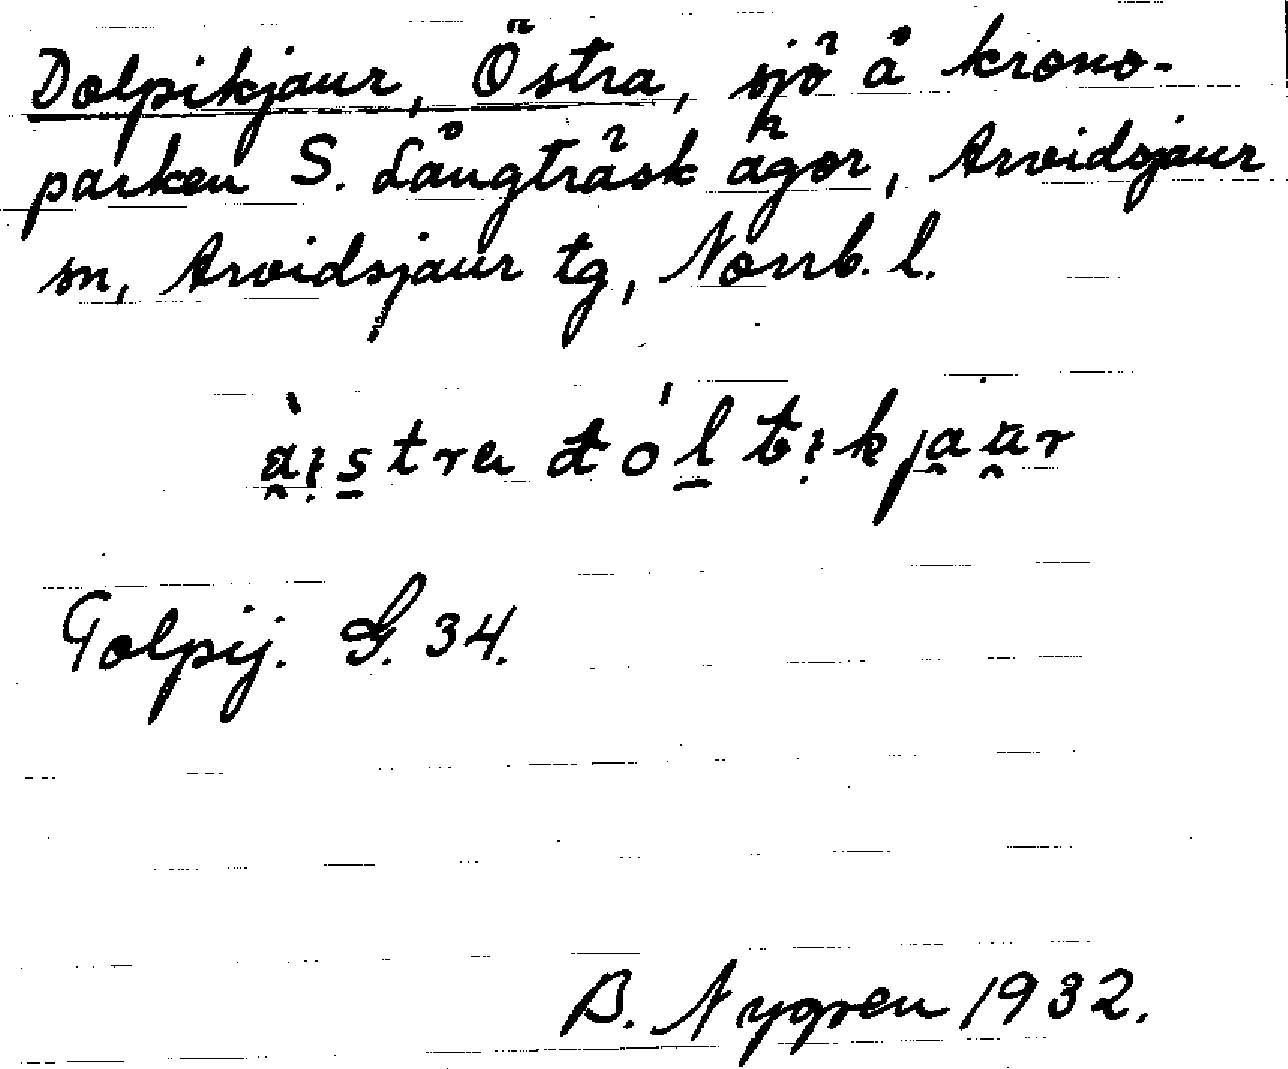 Dolpikjaur, Östra, sjö å krono-
parken S. Långträsk ägor, Arvidsjaur
sn, Arvidsjaur tg, Norrb. l.
Tolpij. G. 34.
B. Nygren 1932.